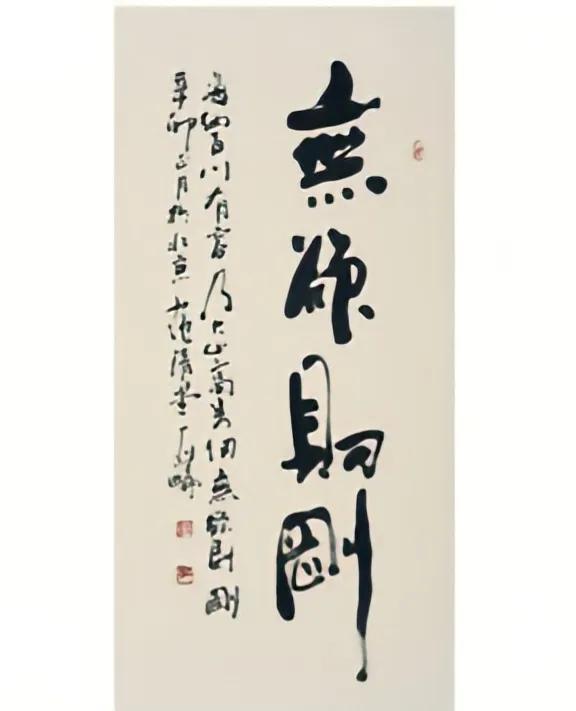 無欲則剛
海納百川有容乃大山高其仞無欲則剛
辛卯正月於北京